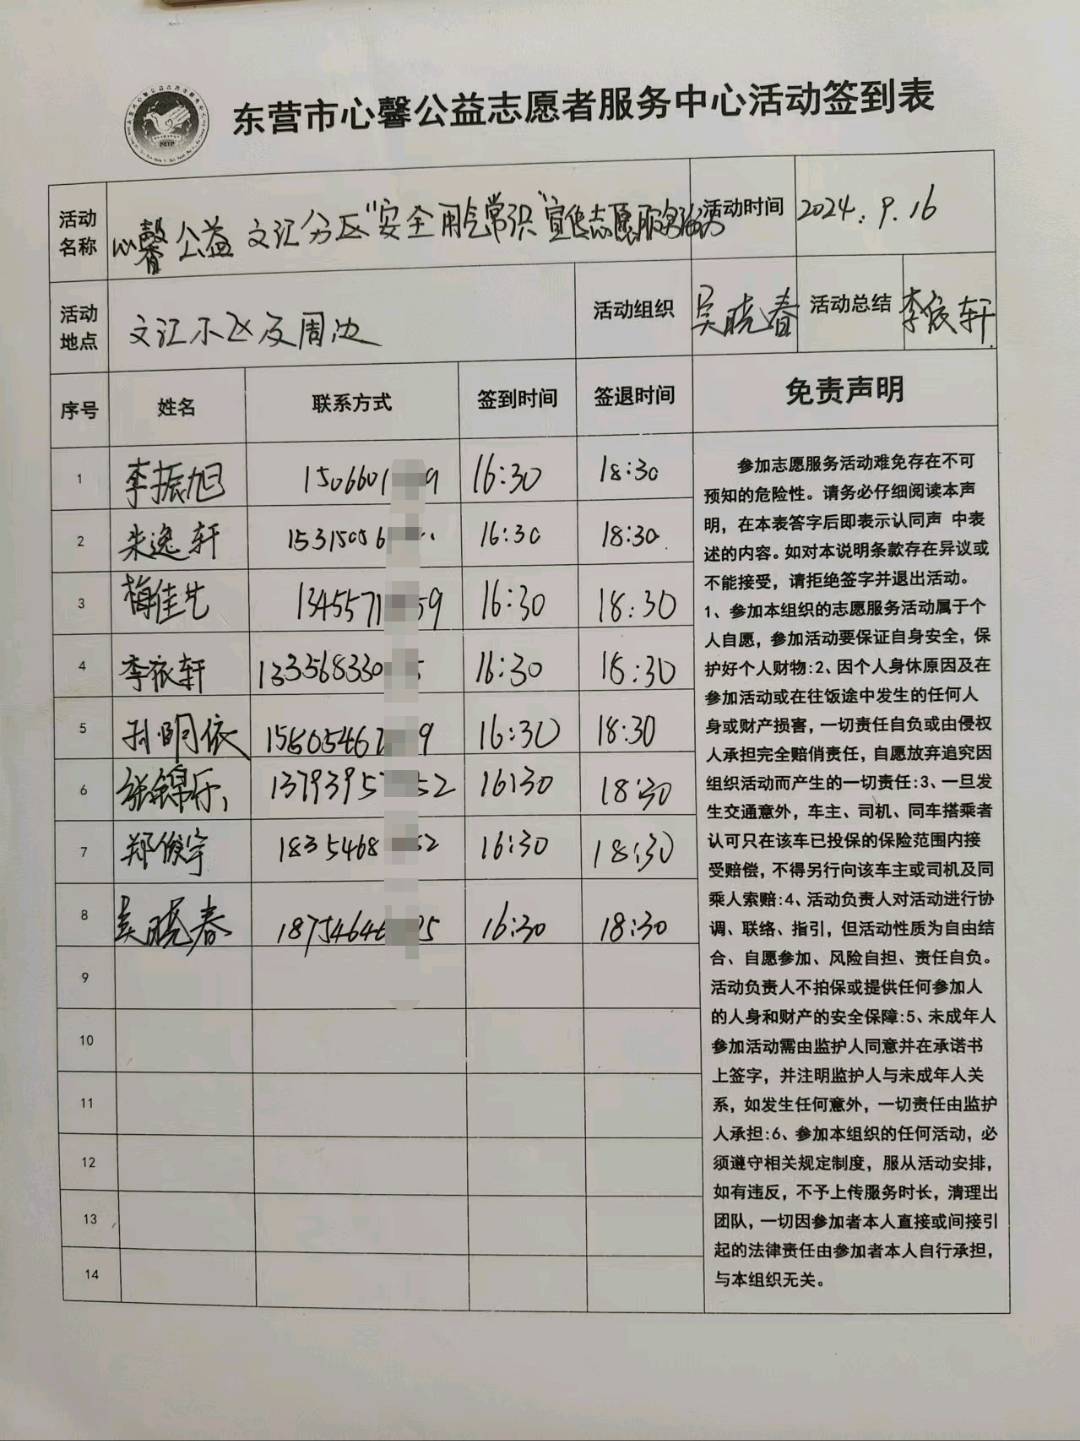 东营市心馨公益志愿者服务中心活动签到表
活动名称 心馨公益文汇分区“安全用气常识”宣传志愿服务活动 活动时间 2024.9.16
活动地点 文汇小区及周边 活动组织 吴晓春 活动总结 李依轩
序号 姓名 联系方式 签到时间 签退时间 免责声明
1 李振旭 1506601 9 16:30 18:30
2 朱逸轩 15315056 16:30 18:30
3 梅佳 1345571 59 16:30 18:30
4 李依轩 133568330 5 16:30 18:30
5 孙明依 1560546 9 16:30 18:30
6 张锦乐 1379395 52 16:30 18:30
7 郑俊宇 1835468 52 16:30 18:30
8 吴晓春 1875464 35 16:30 18:30
9
10
11
12
13
14
参加志愿服务活动难免存在不可
预知的危险性。请务必仔细阅读本声
明，在本表答字后即表示认同声 中表
述的内容。如对本说明条款存在异议或
不能接受，请拒绝签字并退出活动。
1、参加本组织的志愿服务活动属于个
人自愿，参加活动要保证自身安全，保
护好个人财物:2、因个人身休原因及在
参加活动或在往饭途中发生的任何人
身或财产损害，一切责任自负或由侵权
人承担完全赔俏责任，自愿放弃追究因
组织活动而产生的一切责任:3、一旦发
生交通意外，车主、司机、同车搭乘者
认可只在该车已投保的保险范围内接
受赔偿，不得另行向该车主或司机及同
乘人索赔:4、活动负责人对活动进行协
调、联络、指引，但活动性质为自由结
合、自愿参加、风险自担、责任自负。
活动负责人不拍保或提供任何参加人
的人身和财产的安全保障:5、未成年人
参加活动需由监护人同意并在承诺书
上签字，并注明监护人与未成年人关
系，如发生任何意外，一切责任由监护
人承担:6、参加本组织的任何活动，必
须遵守相关规定制度，服从活动安排，
如有违反，不予上传服务时长，清理出
团队，一切因参加者本人直接或间接引
起的法律责任由参加者本人自行承担，
与本组织无关。